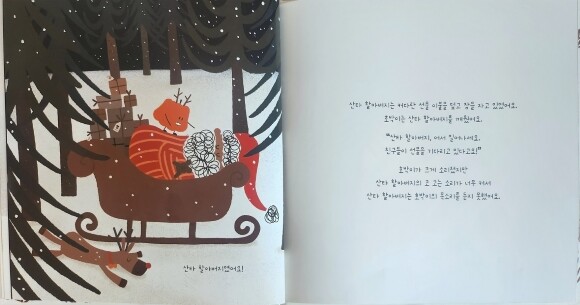 산타 할아버지였어요!
산타 할아버지는 커다란 선물 이불을 덮고 잠을 자고 있었어요.
호박이는 산타 할아버지를 깨웠어요.
“산타 할아버지, 어서 일어나세요.
친구들이 선물을 기다리고 있다고요!”
호박이가 크게 소리쳤지만
산타 할아버지의 코 고는 소리가 너무 커서
산타 할아버지는 호박이의 목소리를 듣지 못했어요.